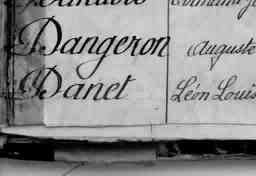 Dangeron Auguste
Danet Léon Louis